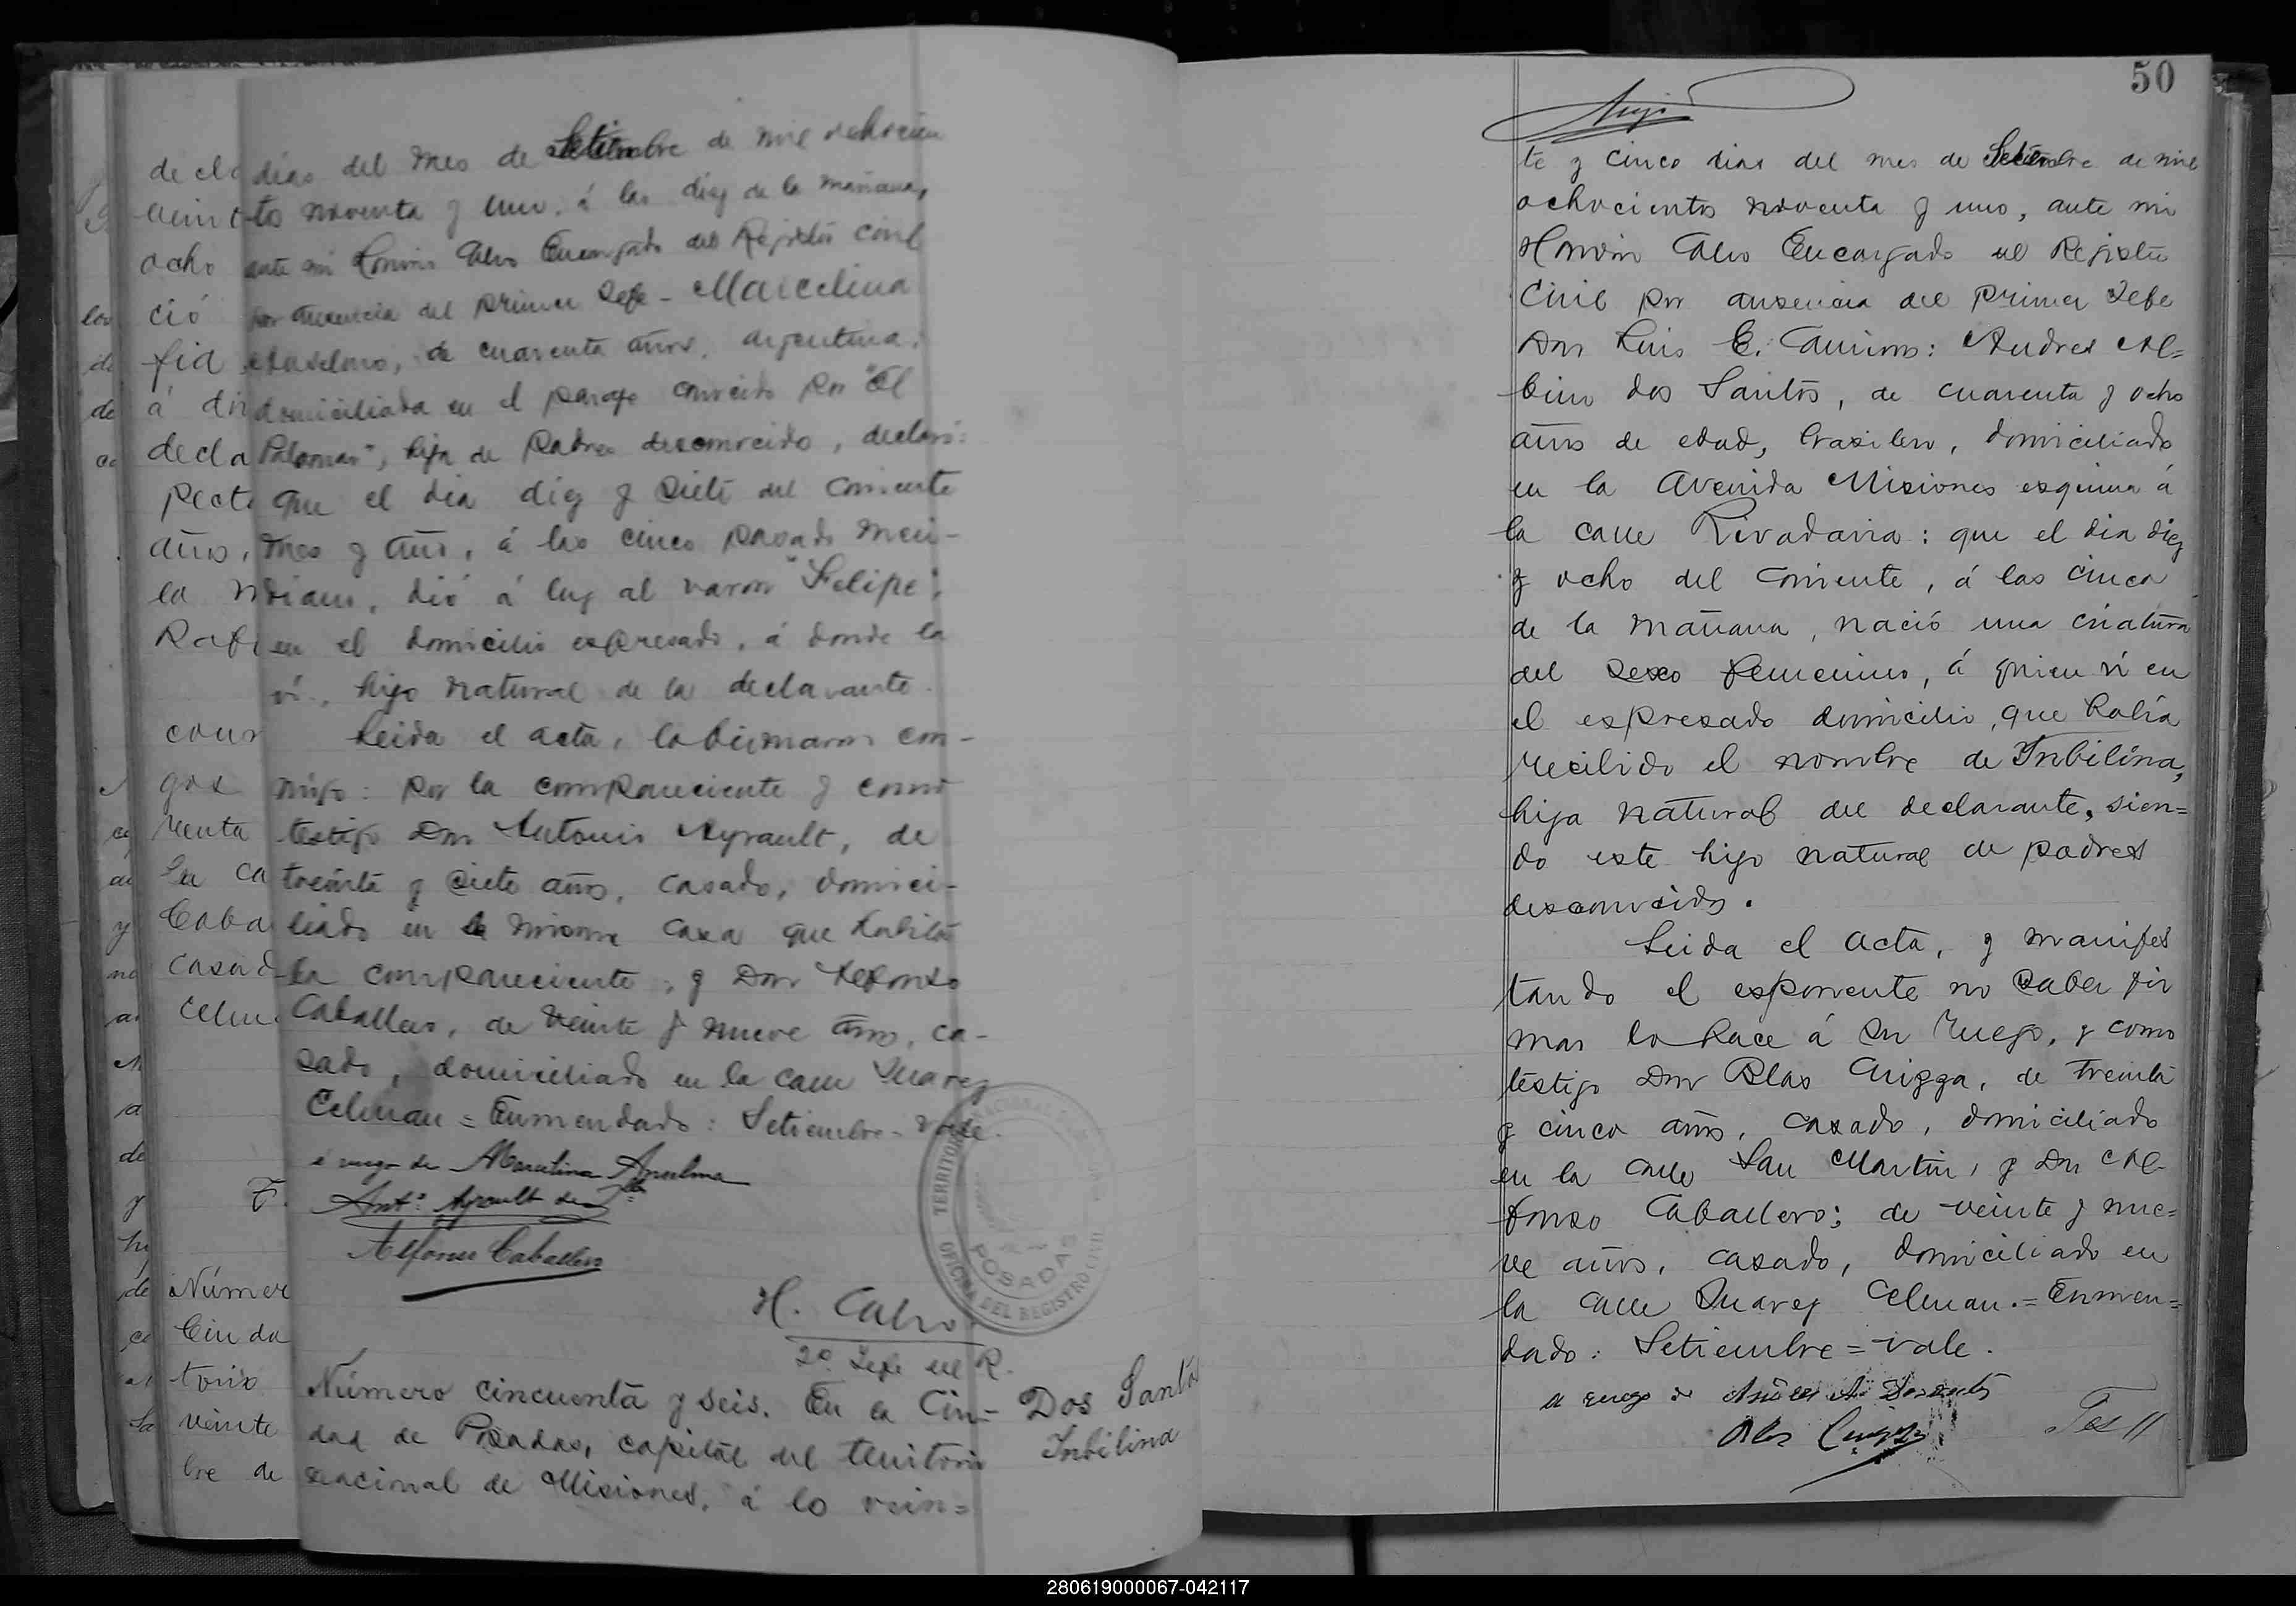 dias del mes de Setiembre de mil ochocien
tos noventa y uno, á las diez de la mañana,
ante mi Honorio Calvo Encargado del Rejistro Civil
por ausencia del primer Jefe - Marcelina
de cuarenta años, argentina,
domiciliada en el paraje conocido por "El
Palomar", hija de Padres desconocido, declaró:
que el dia diez y siete del corriente
mes y año, á las cinco pasado meri-
diano, dió á luz al varon "Felipe",
en el domicilio espresado, á donde lo
ví, hijo natural de la declarante.
Leida el acta, la firmaron con-
migo: por la compareciente y como
testigo Don Antonio Ayrault, de
treinta y siete años, casado, domici-
liado en la misma casa que habita
la compareciente, y Don Alfonso
Caballero, de veinte y nueve años, ca-
sado, domiciliado en la calle Juarez
Celman = Enmendado: Setiembre - vale.
á ruego de Marcelina Anselma
Ant.º Ayrault
Alfonso Caballero
H. Calvo
2º Jefe del R.
TERRITORIO NACIONAL
OFICINA DEL REGISTRO CIVIL
POSADAS
Número cincuenta y seis. En la Ciu-
dad de Posadas, capital del territorio
nacional de Misiones, á lo vein=
Dos Santos
Inbilina
50
te y cinco dias del mes de Setiembre de mil
ochocientos noventa y uno, ante mi
Honorio Calvo Encargado del Rejistro
Civil por ausencia del primer Jefe
Don Luis E. : Andres Al=
bino dos Santos, de cuarenta y ocho
años de edad, brasilero, domiciliado
en la Avenida Misiones esquina á
la calle Rivadavia: que el dia diez
y ocho del corriente, á las cinco
de la mañana, nació una criatura
del sexo femenino, á quien ví en
el espresado domicilio, que habia
recibido el nombre de Inbilina,
hija natural del declarante, sien=
do este hijo natural de padres
desconocidos.
Leida el acta, y manifes
tando el esponente no saber fir
mar lo hace á su ruego, y como
testigo Don Blas de treinta
y cinco años, casado, domiciliado
en la calle San Martin, y Don Al-
fonso Caballero; de veinte y nue=
ve años, casado, domiciliado en
la calle Juarez Celman.= Enmen=
dado: Setiembre = vale.
a ruego de Andres A. Dosantos
Blas
Tes //
280619000067-042117